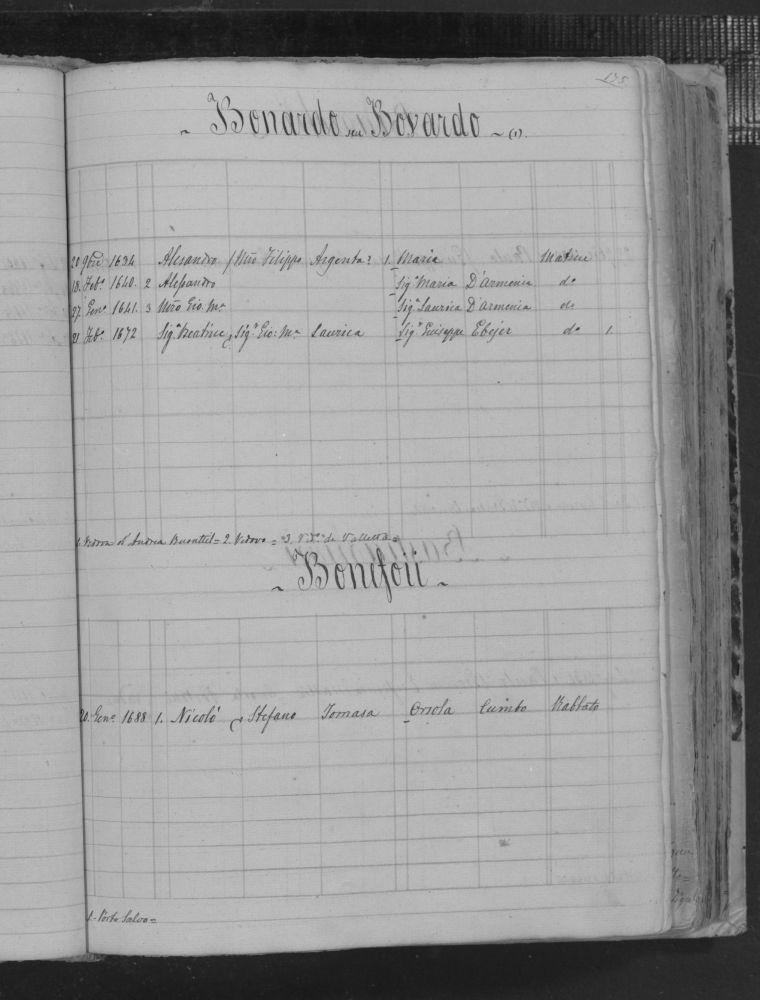 175
~ Bonardo seu Bovardo ~ (1).
20 9bre 1634 Alesandro / Mro Filippo Argenta? 1. Maria Matrice
18. Febo. 1640. 2 Alessandro Siga. Maria D'Armenia do
27. Geno. 1641. 3 Mro Gio. Ma. Siga. Laurica D'armenia do
21. Febo. 1672 Siga. Beatrice Sigr. Gio: Ma. Laurica Sigr. Giuseppe Ebejer do 1.
1. Vedova di Andrea Buonttel = 2. Vedovo = 3. da Valletta =
~ Bonifoii ~
20. Geno. 1688 1. Nicolò Stefano Tomasa Orsola Cumbo Rabbato
1. Porto Salvo =